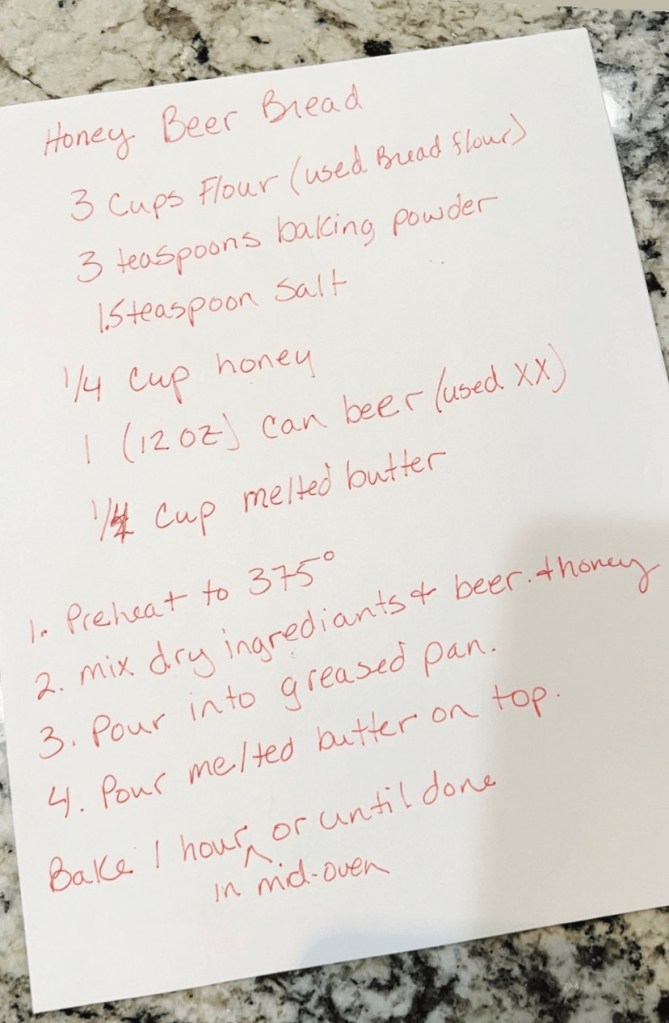 Honey Beer Bread
3 Cups Flour (used Bread flour)
3 teaspoons baking powder
1.5 teaspoon salt
1/4 cup honey
1 (12 oz) can beer (used XX)
1/4 cup melted butter
1. Preheat to 375°
2. mix dry ingrediants & beer. & honey
3. Pour into greased pan.
4. Pour melted butter on top.
Bake 1 hour ^ or until done
in mid-oven